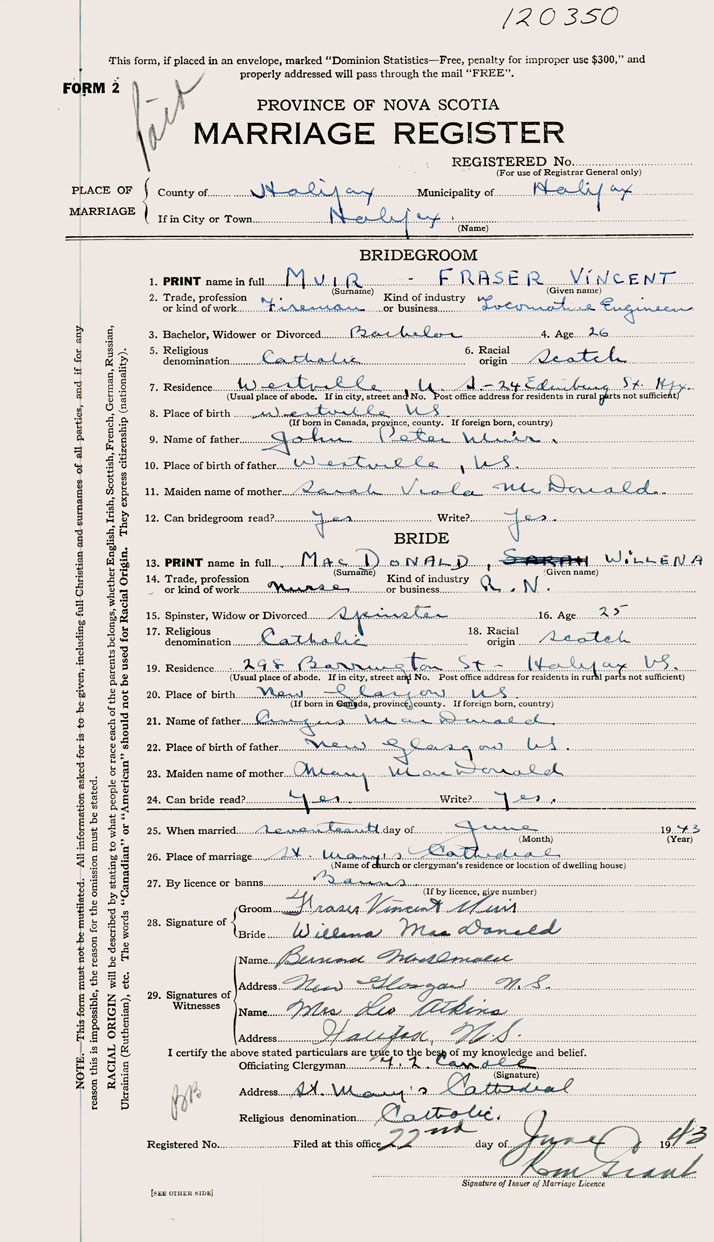 120350
This form, if placed in an envelope, marked "Dominion Statistics—Free, penalty for improper use $300," and
properly addressed will pass through the mail "FREE".
FORM 2
Paid
PROVINCE OF NOVA SCOTIA
MARRIAGE REGISTER
REGISTERED No.
(For use of Registrar General only)
PLACE OF MARRIAGE
County of Halifax Municipality of Halifax
If in City or Town Halifax.
(Name)
BRIDEGROOM
1. PRINT name in full MUIR - FRASER VINCENT
(Surname) (Given name)
2. Trade, profession or kind of work Fireman Kind of industry or business Locomotive Engineer
3. Bachelor, Widower or Divorced Bachelor 4. Age 26
5. Religious denomination Catholic 6. Racial origin Scotch
7. Residence Westville, N. S - 24 Edinburg St. Hfx.
(Usual place of abode. If in city, street and No. Post office address for residents in rural parts not sufficient)
8. Place of birth Westville NS.
(If born in Canada, province, county. If foreign born, country)
9. Name of father John Peter Muir.
10. Place of birth of father Westville, NS.
11. Maiden name of mother Sarah Viola McDonald.
12. Can bridegroom read? Yes Write? Yes.
BRIDE
13. PRINT name in full MACDONALD, SARAH WILLENA
(Surname) (Given name)
14. Trade, profession or kind of work nurse Kind of industry or business R. N.
15. Spinster, Widow or Divorced Spinster 16. Age 25
17. Religious denomination Catholic 18. Racial origin Scotch
19. Residence 298 Barrington St - Halifax NS.
(Usual place of abode. If in city, street and No. Post office address for residents in rural parts not sufficient)
20. Place of birth New Glasgow NS.
(If born in Canada, province, county. If foreign born, country)
21. Name of father Angus MacDonald
22. Place of birth of father New Glasgow NS.
23. Maiden name of mother Mary MacDonald
24. Can bride read? Yes. Write? Yes.
25. When married seventeenth day of June 1943
(Month) (Year)
26. Place of marriage St. Mary's Cathedral
(Name of church or clergyman's residence or location of dwelling house)
27. By licence or banns Banns
(If by licence, give number)
28. Signature of
Groom Fraser Vincent Muir
Bride Willena MacDonald
29. Signatures of Witnesses
Name Bernard
Address New Glasgow N.S.
Name Mrs Leo Atkins
Address Halifax, N.S.
I certify the above stated particulars are true to the best of my knowledge and belief.
Officiating Clergyman
(Signature)
Address St. Mary's Cathedral
Religious denomination Catholic.
Registered No. Filed at this office 22nd day of June 1943
Grant
Signature of Issuer of Marriage Licence
[SEE OTHER SIDE]
BB
NOTE.—This form must not be mutilated. All information asked for is to be given, including full Christian and surnames of all parties, and if for any
reason this is impossible, the reason for the omission must be stated.
RACIAL ORIGIN will be described by stating to what people or race each of the parents belongs, whether English, Irish, Scottish, French, German, Russian,
Ukrainian (Ruthenian), etc. The words "Canadian" or "American" should not be used for Racial Origin. They express citizenship (nationality).